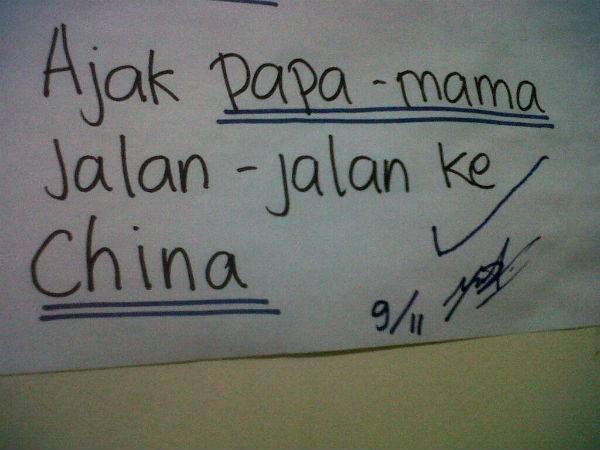 Ajak papa-mama
Jalan-jalan ke
China
9/11